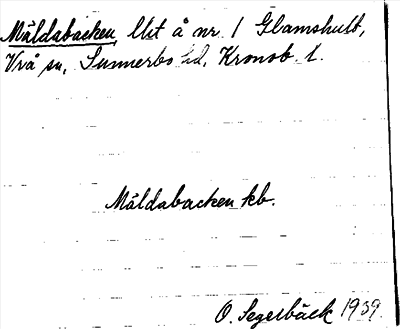 Måldabacken, Utt å nr 1 Glamshult,
Vrå sn, Sunnerbo hd, Kronob. l.
Måldabacken kb.
O. Segerbäck 1939.